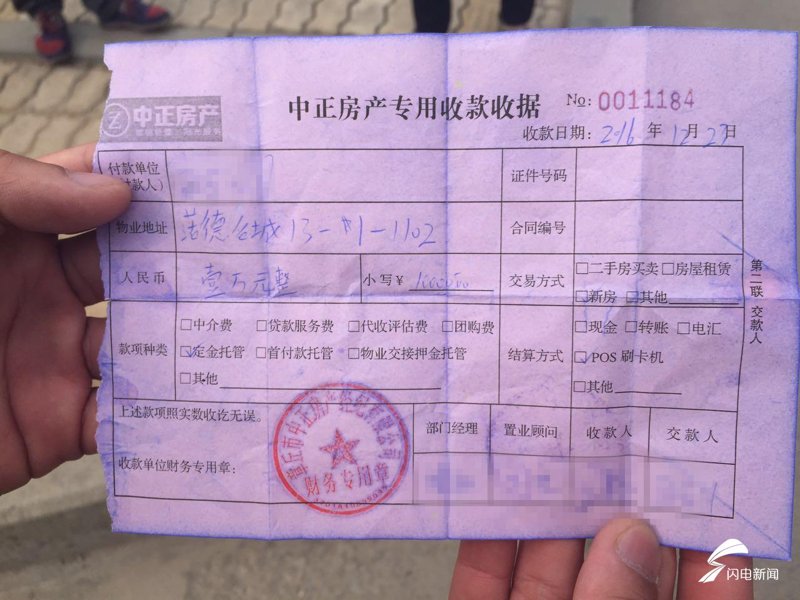 中正房产
中正房产专用收款收据
No: 0011184
收款日期: 2016 年 12 月 27 日
付款单位
付款人）
证件号码
物业地址
德合城 13-1-1102
合同编号
人民币
壹万元整
小写¥ 10000
交易方式
□二手房买卖 □房屋租赁
□新房 □其他
款项种类
□中介费 □贷款服务费 □代收评估费 □团购费
□定金托管 □首付款托管 □物业交接押金托管
□其他
结算方式
□现金 □转账 □电汇
□POS 刷卡机
□其他
第二联 交款人
上述款项照实数收讫无误。
收款单位财务专用章：
章丘市中正房产经纪有限公司
财务专用章
部门经理
置业顾问
收款人
交款人
闪电新闻